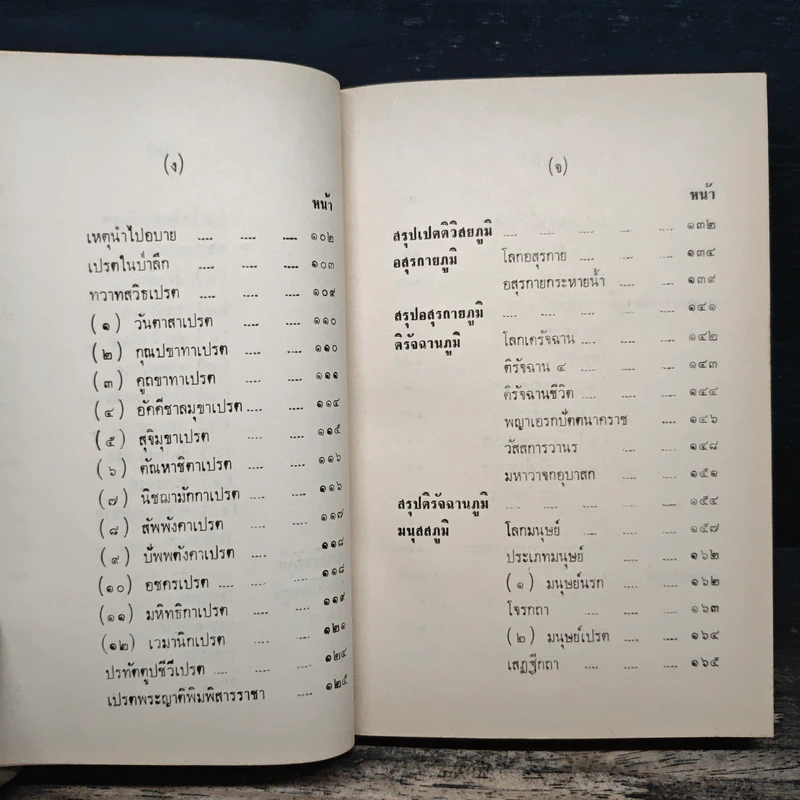 (ง)
หน้า
เหตุนำไปอบาย .... .... .... ๑๐๒
เปรตในบาลี .... .... .... ๑๐๓
ทวาทสวิธเปรต .... .... .... ๑๐๙
(๑) วันตาสาเปรต .... .... ๑๑๐
(๒) กุณปขาทาเปรต .... .... ๑๑๐
(๓) คูถขาทาเปรต .... .... ๑๑๑
(๔) อัคคีชาลมุขาเปรต .... .... ๑๑๔
(๕) สุจิมุขาเปรต .... .... ๑๑๕
(๖) ตัณหาชิตาเปรต .... .... ๑๑๖
(๗) นิชฌามักกาเปรต .... .... ๑๑๖
(๘) สัพพังคาเปรต .... .... ๑๑๗
(๙) ปัพพตังคาเปรต .... .... ๑๑๘
(๑๐) อชครเปรต .... .... .... ๑๑๘
(๑๑) มหิทธิกาเปรต .... .... ๑๑๙
(๑๒) เวมานิกเปรต .... .... ๑๒๑
ปรทัตตูปชีวีเปรต .... .... .... ๑๒๔
เปรตพระญาติพิมพิสารราชา .... ๑๒๕
(จ)
หน้า
สรุปเปตติวิสยภูมิ .... .... .... .... ๑๓๒
อสุรกายภูมิ โลกอสุรกาย .... .... ๑๓๔
อสุรกายกระหายน้ำ .... .... ๑๓๙
สรุปอสุรกายภูมิ .... .... .... .... ๑๔๑
ติรัจฉานภูมิ โลกเดรัจฉาน .... .... ๑๔๒
ติรัจฉาน ๔ .... .... ๑๔๓
ติรัจฉานชีวิต .... .... .... ๑๔๔
พญาเอรกปัตตนาคราช .... ๑๔๖
วัสสการวานร .... .... ๑๔๘
มหาวาจกอุบาสก .... .... ๑๕๑
สรุปติรัจฉานภูมิ .... .... .... .... ๑๕๔
มนุสสภูมิ โลกมนุษย์ .... .... .... ๑๕๗
ประเภทมนุษย์ .... .... ๑๖๒
(๑) มนุษย์นรก .... .... ๑๖๒
โจรกถา .... .... .... ๑๖๓
(๒) มนุษย์เปรต .... .... ๑๖๔
เสฏฐีกถา .... .... .... ๑๖๕